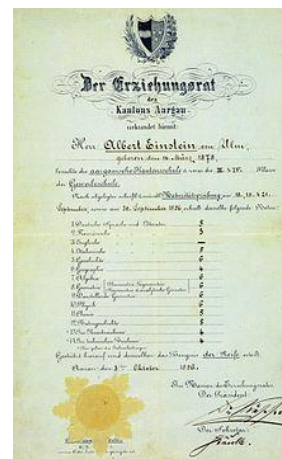 Der Erziehungsrat
des
Kantons Aargau
urkundet hiemit:
Herr Albert Einstein von Ulm,
geboren den 14. März 1879,
besuchte die aargauische Kantonsschule & zwar die III. & IV. Klasse
der Gewerbeschule.
Nach abgelegter schriftl. & mündl. Maturitätsprüfung am 18. 19. & 21.
September, sowie am 30. September 1896, erhielt derselbe folgende Noten:
1. Deutsche Sprache und Litteratur 5
2. Französische 3
3. Englische —
4. Italienische 5
5. Geschichte 6
6. Geographie 4
7. Algebra 6
8. Geometrie 6
9. Darstellende Geometrie 6
10. Physik 6
11. Chemie 5
12. Naturgeschichte 5
13. Im Kunstzeichnen 4
14. Im technischen Zeichnen 4
Gestützt hierauf wird demselben das Zeugnis der Reife erteilt.
Aarau, den 3ten Oktober 1896.
Im Namen des Erziehungsrates
Der Präsident:
Der Sekretär: